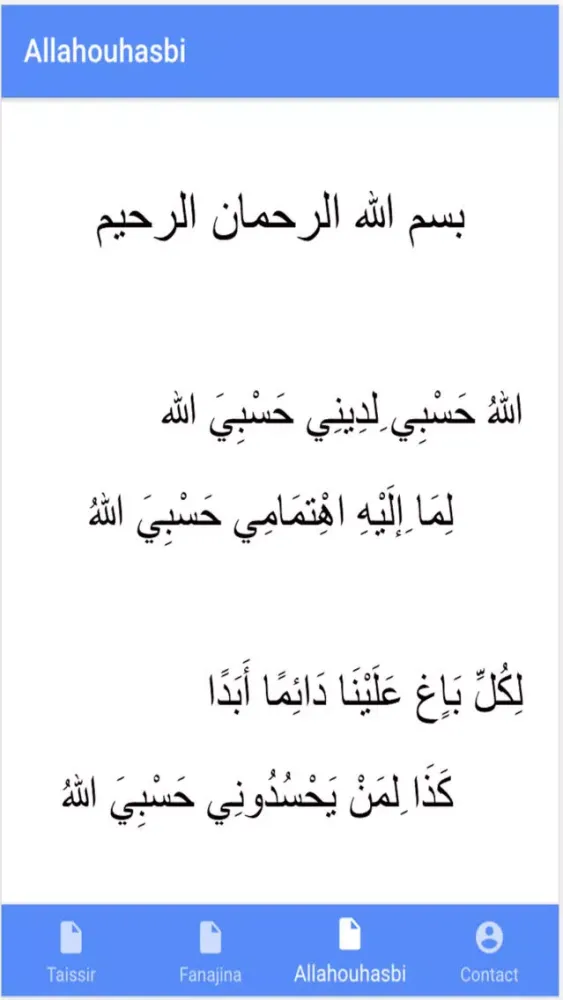 Allahouhasbi
بسم الله الرحمان الرحيم
اللهُ حَسْبِي لِدِينِي حَسْبِيَ الله
لِمَا إِلَيْهِ اهْتِمَامِي حَسْبِيَ اللهُ
لِكُلِّ بَاٍغ عَلَيْنَا دَائِمًا أَبَدًا
كَذَا لِمَنْ يَحْسُدُونِي حَسْبِيَ اللهُ
Taissir
Fanajina
Allahouhasbi
Contact